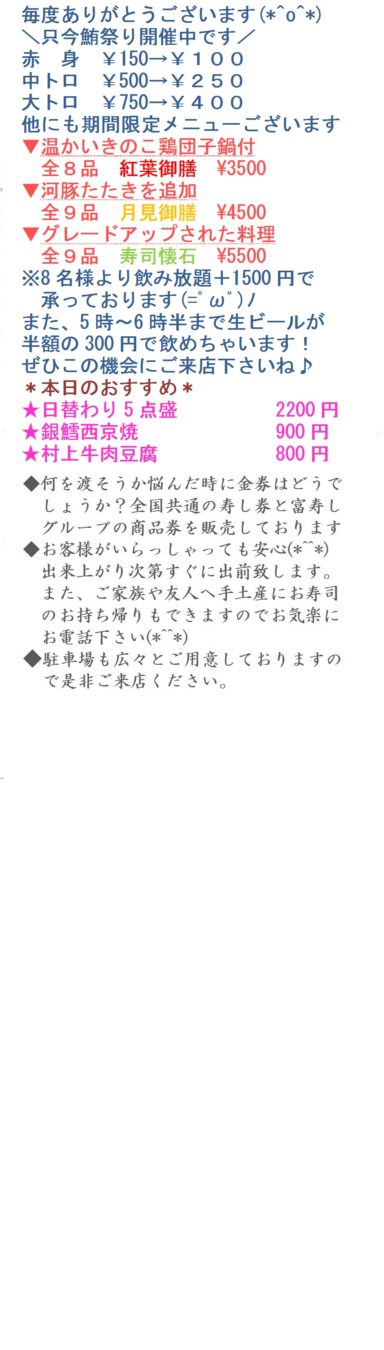 毎度ありがとうございます(*^o^*)
＼只今鮪祭り開催中です／
赤　身　￥150→￥１００
中トロ　￥500→￥２５０
大トロ　￥750→￥４００
他にも期間限定メニューございます
▼温かいきのこ鶏団子鍋付
全８品　紅葉御膳　¥3500
▼河豚たたきを追加
全９品　月見御膳　¥4500
▼グレードアップされた料理
全９品　寿司懐石　¥5500
※8 名様より飲み放題＋1500 円で
承っております(=ﾟωﾟ)ﾉ
また、5 時～6 時半まで生ビールが
半額の 300 円で飲めちゃいます！
ぜひこの機会にご来店下さいね♪
＊本日のおすすめ＊
★日替わり 5 点盛　2200 円
★銀鱈西京焼　900 円
★村上牛肉豆腐　800 円
◆何を渡そうか悩んだ時に金券はどうで
しょうか？全国共通の寿し券と富寿し
グループの商品券を販売しております
◆お客様がいらっしゃっても安心(*^^*)
出来上がり次第すぐに出前致します。
また、ご家族や友人へ手土産にお寿司
のお持ち帰りもできますのでお気楽に
お電話下さい(*^^*)
◆駐車場も広々とご用意しておりますの
で是非ご来店ください。